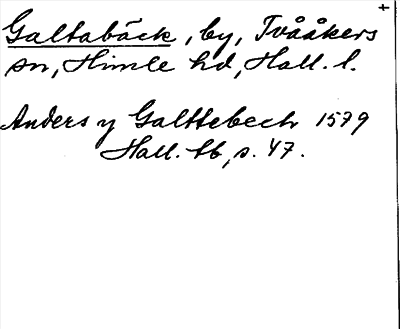 Galtabäck, by, Tvååkers
sn, Himle hd, Hall. l.
Anders y Galttebech 1579
Hall. tb, s. 47.